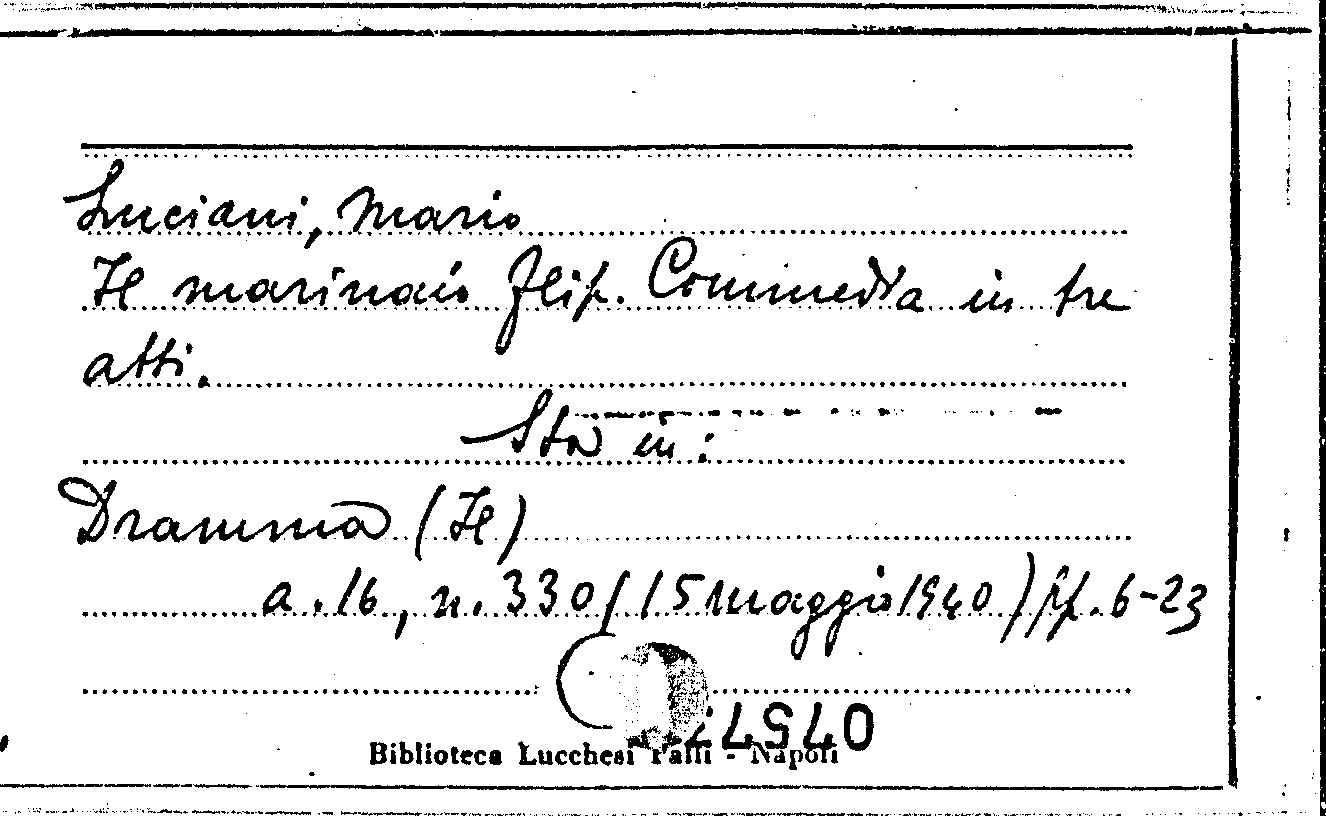 Luciani, Mario
Il marinaio Flip. Commedia in tre
atti.
Sta in:
Dramma (Il)
a. 16, n. 330 (15 maggio 1940) pp. 6-23
Biblioteca Lucchesi Palli - Napoli